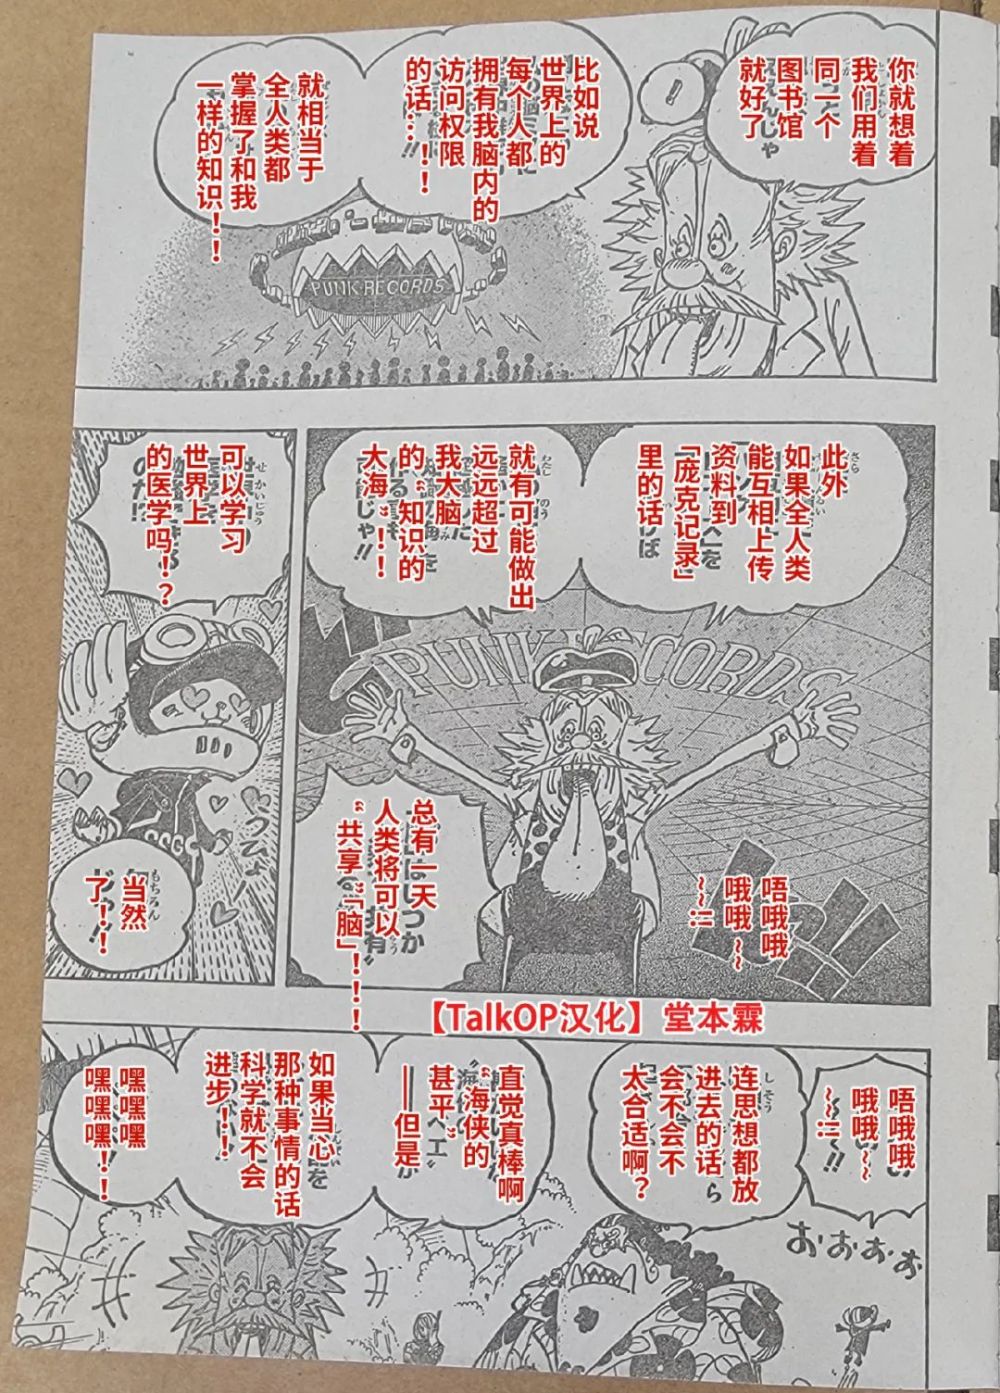 你就想着
我们用着
同一个
图书馆
就好了
比如说
世界上的
每个人都
拥有我脑内的
访问权限
的话…！！
就相当于
全人类都
掌握了和我
一样的知识！！
PUNK RECORDS
此外
如果全人类
能互相上传
资料到
「庞克记录」
里的话
就有可能做出
远远超过
我大脑
的“知识的
大海”！！
PUNK RECORDS
总有一天
人类将可以
“共享”「脑」！！！
唔哦哦
哦哦~
~~!!
可以学习
世界上
的医学吗！？
当然
了！！
【TalkOP汉化】 堂本霖
唔哦哦
哦哦~~
~~!!
おおおお
连思想都放
进去的话
会不会不
太合适啊？
直觉真棒啊
“海侠的
甚平”
——但是
如果当心
那种事情的话
科学就不会
进步！
嘿嘿嘿
嘿嘿嘿！！